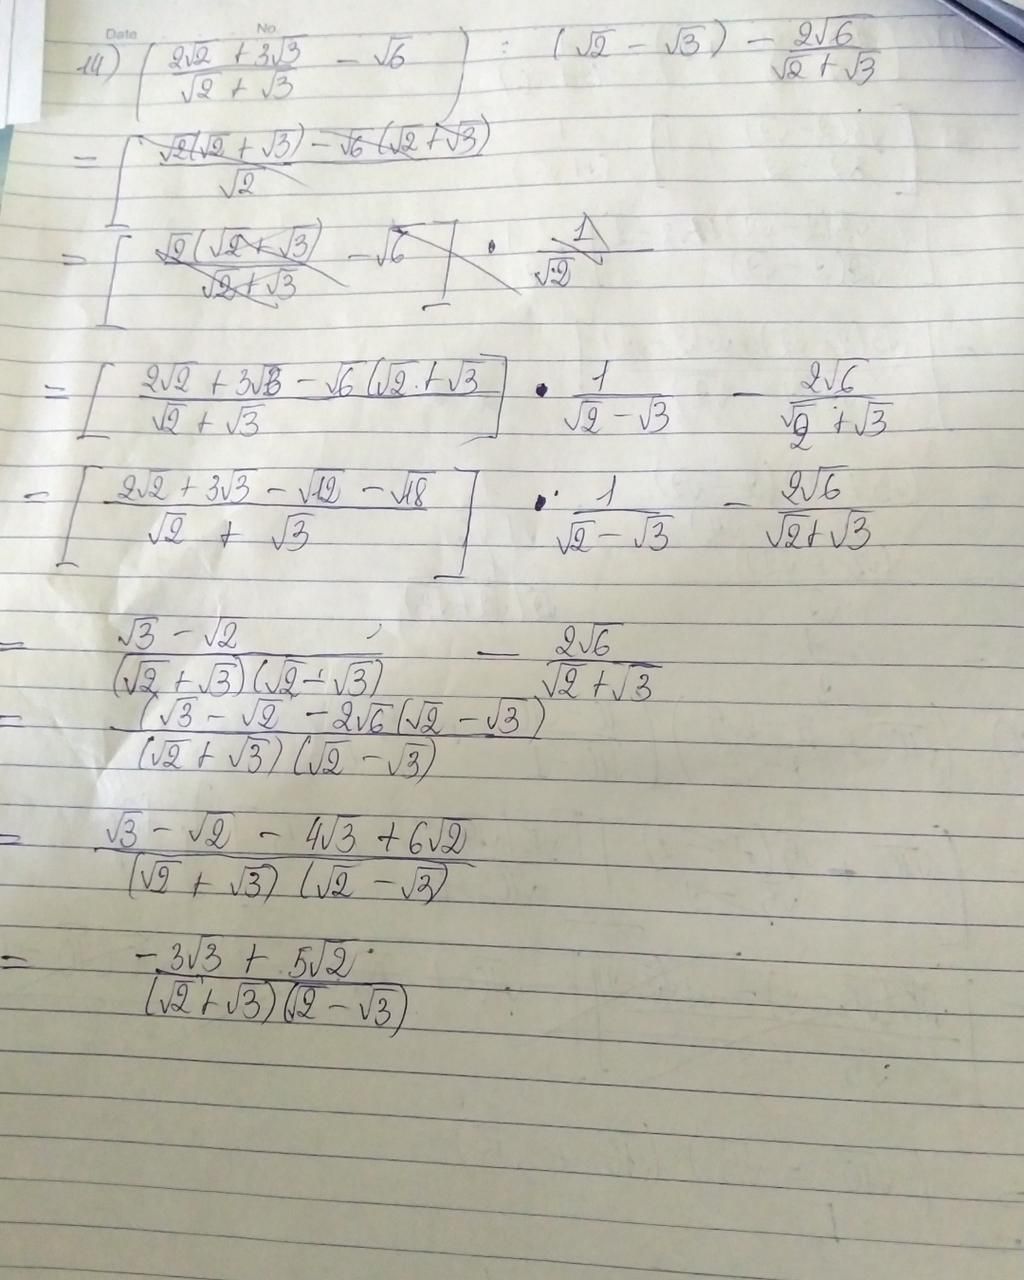 Date No
14) ( (2√2 + 3√3)/(√2 + √3) - √6 ) : (√2 - √3) - 2√6/(√2 + √3)
= [ (√2(√2 + √3) - √6 (√2 + √3))/√2
= [ √2(√2 + √3)/(√2 + √3) - √6 ] • 1/√2
= [ (2√2 + 3√3 - √6 (√2 + √3)/(√2 + √3) ] • 1/(√2 - √3) - 2√6/(√2 + √3)
= [ (2√2 + 3√3 - √12 - √18)/(√2 + √3) ] • 1/(√2 - √3) - 2√6/(√2 + √3)
= (√3 - √2)/((√2 + √3)(√2 - √3)) - 2√6/(√2 + √3)
= (√3 - √2 - 2√6(√2 - √3))/((√2 + √3)(√2 - √3))
= (√3 - √2 - 4√3 + 6√2)/((√2 + √3)(√2 - √3))
= (-3√3 + 5√2)/((√2 + √3)(√2 - √3))